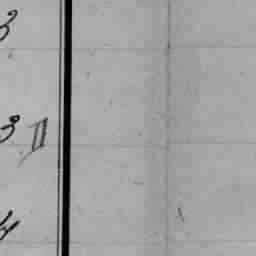 3
3 II
4